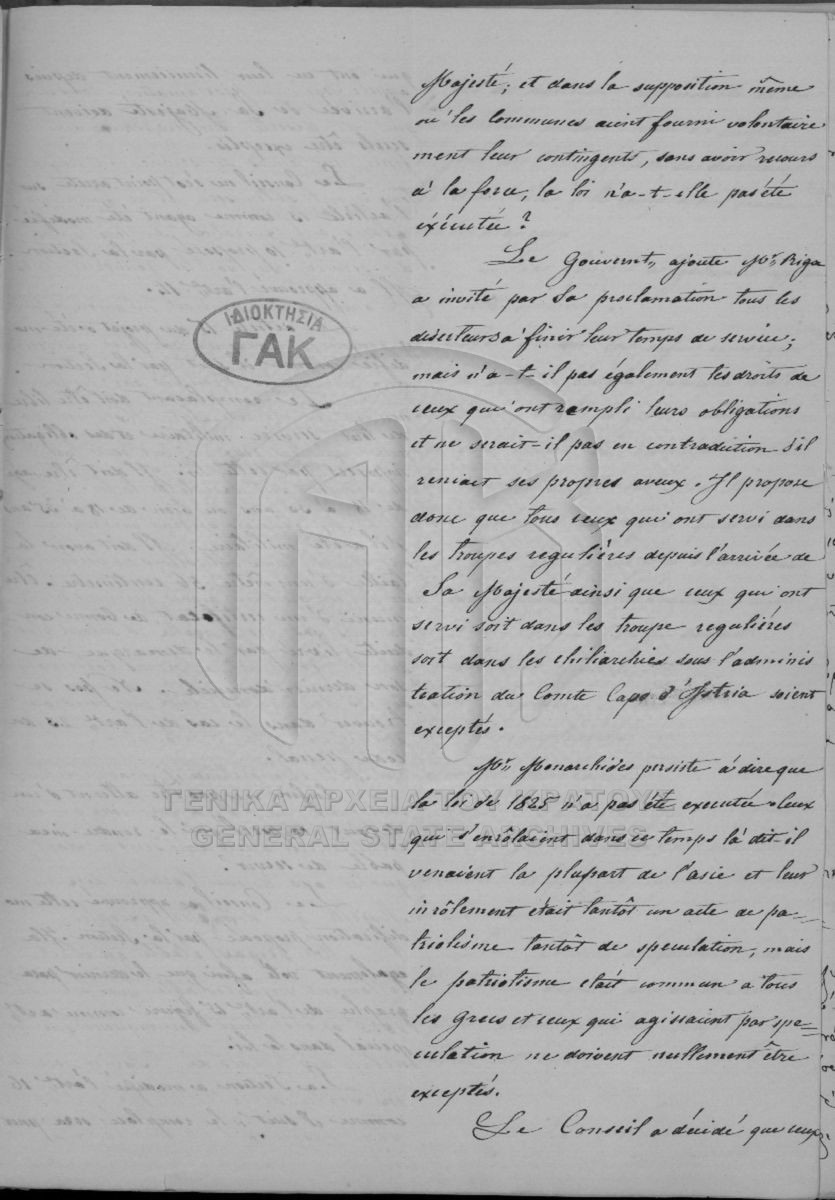 Majesté; et dans la supposition même
où les Communes aient fourni volontaire
ment leur contingents, sans avoir recours
à la force, la loi n'a-t-elle pas été
éxécutée?
Le Gouvernt,, ajoute Mr,, Riga
a invité par Sa proclamation tous les
déserteurs à finir leur temps de service;
mais n'a-t-il pas également les droits de
ceux qui ont rempli leurs obligations
et ne serait-il pas en contradiction s'il
reniait ses propres aveux. Il propose
donc que tous ceux qui ont servi dans
les troupes regulières depuis l'arrivée de
Sa Majesté ainsi que ceux qui ont
servi soit dans les troupe regulières
soit dans les chiliarchies sous l'adminis
tration du Comte Capo d'Istria soient
exceptés.
Mr,, Monarchidès persiste à dire que
la loi de 1825 n'a pas été executée. Ceux
qui s'enrôlaient dans ce temps là dit-il
venaient la plupart de l'asie et leur
inrôlement était tantôt un acte de pa-
triotisme tantôt de speculation, mais
le patriotisme etait commun a tous
les Grecs et ceux qui agissaient par spe=
culation ne doivent nullement être
exceptés.
Le Conseil a décidé que ceux
ΙΔΙΟΚΤΗΣΙΑ
ΓΑΚ
ΓΕΝΙΚΑ ΑΡΧΕΙΑ ΤΟΥ ΚΡΑΤΟΥΣ
GENERAL STATE ARCHIVES